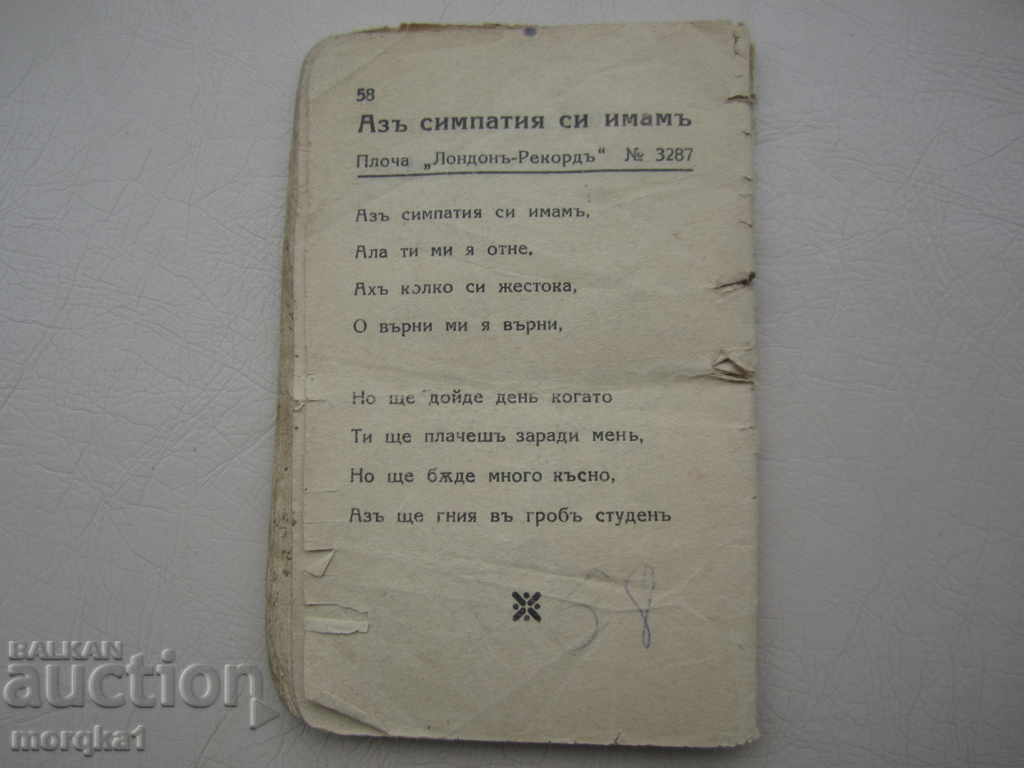 58
Азъ симпатия си имамъ
Плоча „Лондонъ-Рекордъ“ № 3287
Азъ симпатия си имамъ,
Ала ти ми я отне,
Ахъ колко си жестока,
О върни ми я върни,
Но ще дойде день когато
Ти ще плачешъ заради мень,
Но ще бѫде много късно,
Азъ ще гния въ гробъ студенъ
BALKAN
auction
morqka1